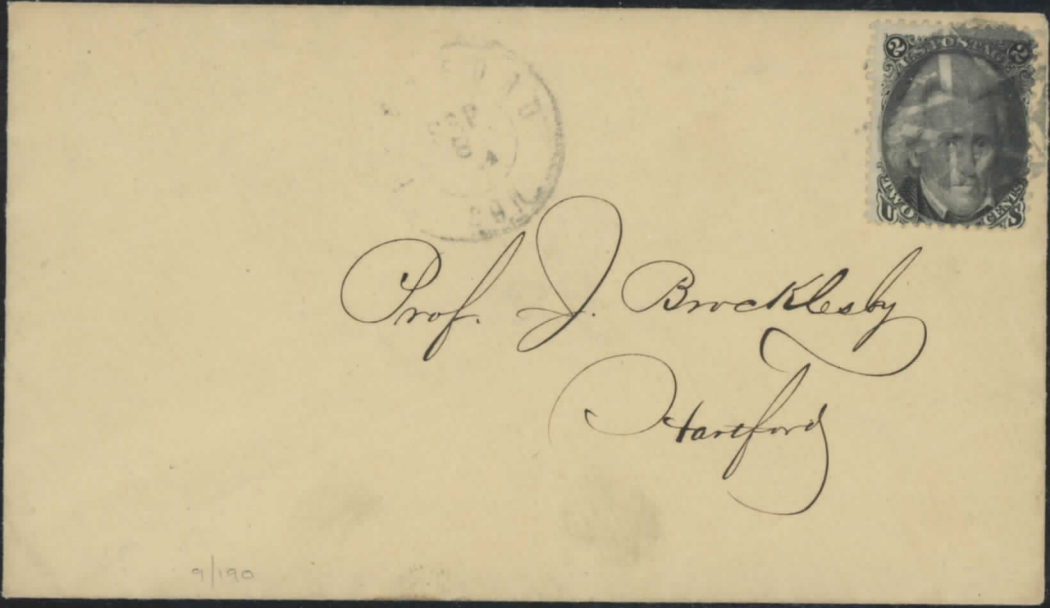 2 U.S. POSTAGE 2
TWO CENTS
U S
SEP
8
Prof. J. Brocklesby
Hartford
9/190